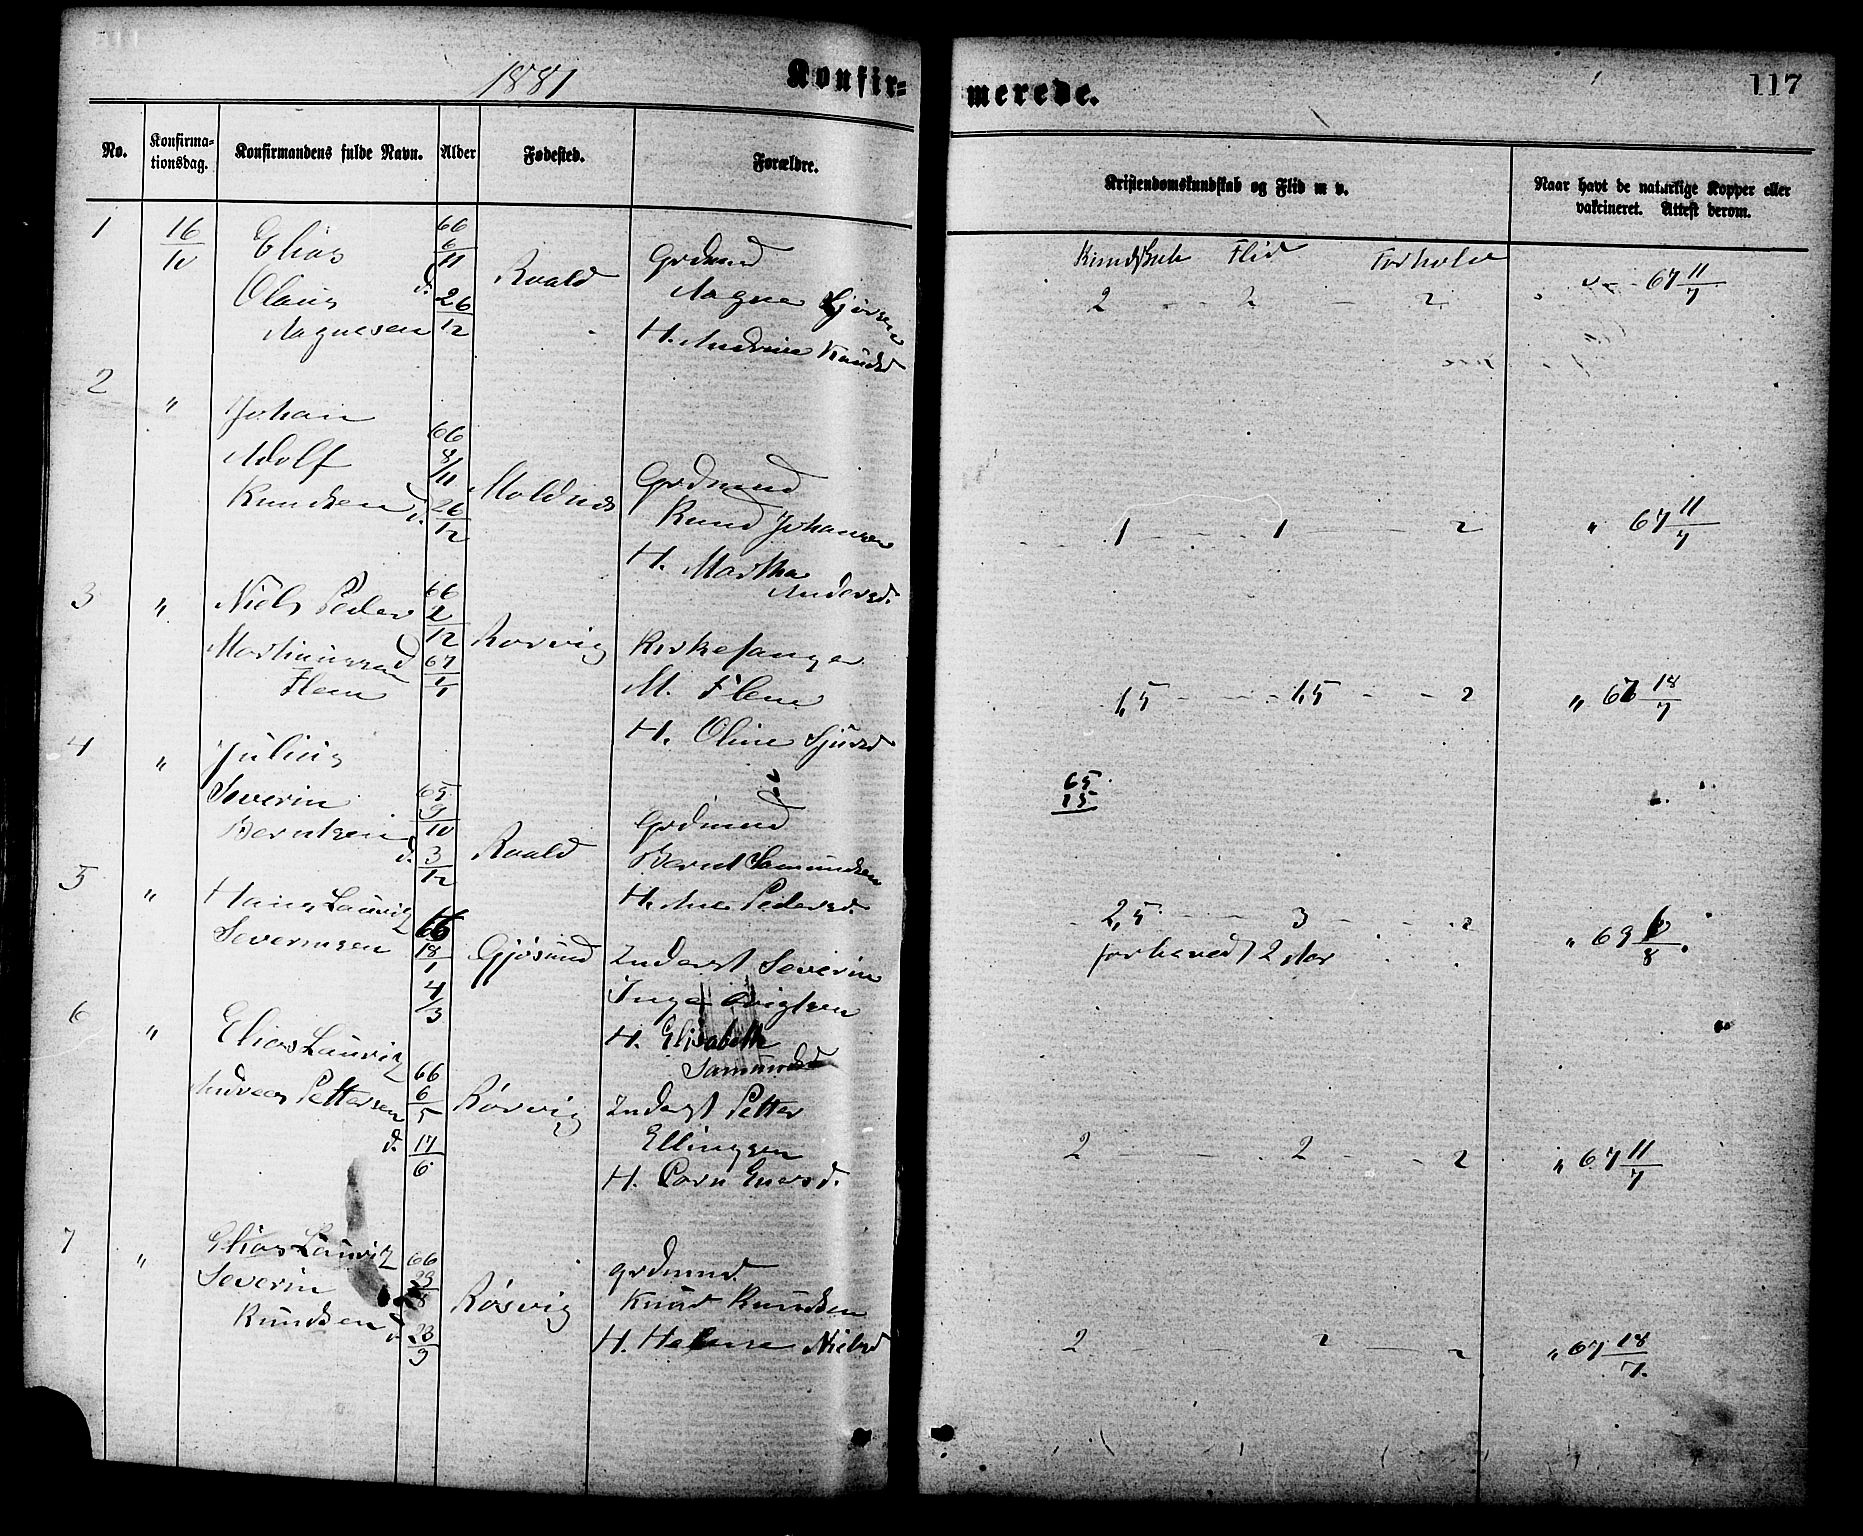 1881 Konfir= merede. 117
No. Konfirma-tionsdag. Konfirmandens fulde Navn. Alder Fødested. Forældre. Kristendomskundskab og Flid m v. Naar havt de naturlige Kopper eller vakcineret. Attest derom.
Kundskab Flid Forhold
1 16/10 Elias 66 6/11 Roald Grdmand
Olaus d. 26/12 Aagne 2 - 2 - 2 v - 67 11/7
Aagnesen H. Andrine Knudsd
2 " Johan
Adolf 66 8/11 Moldnæs Grdmand
Knudsen d. 26/12 Knud Johansen 1 - 1 - 2 " 67 11/7
H. Martha
Andersd.
3 " Niels Peder 66 2/12 Rørvig Kirkesanger
Martinussen d 67 1/1 M. Flem 1,5 - 1,5 - 2 " 67 18/7
Flem H. Oline Sjursd
4 " Julius 65
15
Severin 65 9/10 Grdmand
Berntsen d. 3/12 Roald Bernt Samundsen
H. Ane Pedersd. 2,5 - 3 - 2 " 69 /8
forhen vedt
5 " Hans Lauritz 66
Severinsen 18/1 Gjøsund Inderst Severin
4/3 Inge
H. Elisabeth
Samundsd
6 " Elias Lauritz 66
Andreas Pettersen 6/5 Rørvig Inderst Petter
d. 17/6 Ellingsen 2 - 2 - 2 " 67 11/7
H.
7 " Elias Lauritz 66 grdmand
Severin 29/8 Røsvig Knud Knudsen
Knudsen d. 23/9 H. Nielsd 2 - 2 - 2 " 67 18/7.